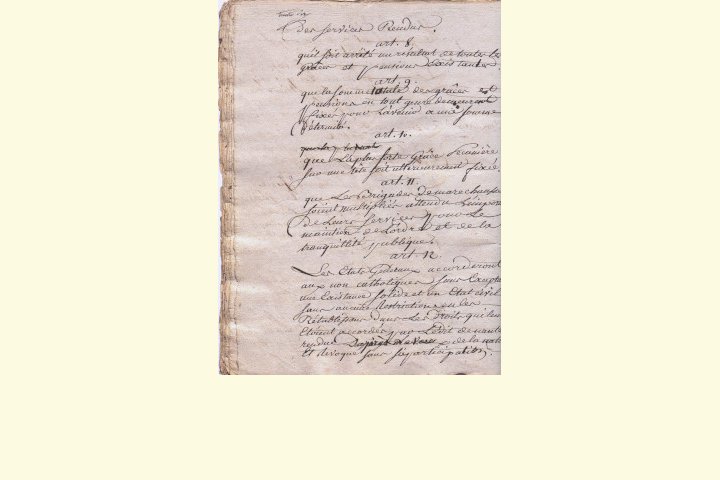 Des services Rendus.
art. 8.
qu'il soit arreté un resultat de toutes les
graces et pensions Existantes.
art. 9.
que la somme totale des graces et
pensions en tout genre demeurent
fixée pour L'avenir a une somme
déterminée.
art. 10.
que La plus forte Grâce Pecuniere
sur une tête soit ultérieurement fixée.
art. 11.
que Les Brigades de marechaussée
soient multipliées attendu L'impor
de Leurs Services pour Le
maintien de L'ordre et de la
tranquillité publique.
art. 12.
Les Etats Generaux accorderont
aux non catholiques sans Exception
une Existance solide et un Etat civil
sans aucune Restriction en les
Rétablissant dans Les Droits qui leur
Etoient accordés par L'Edit de nantes
rendu de la nation
Et revoqué sans sa participation.